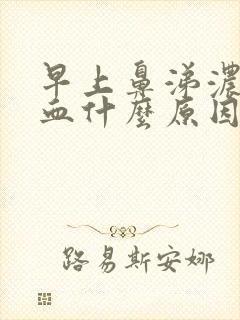 早上鼻涕濃
血什麼原因
路易斯安娜